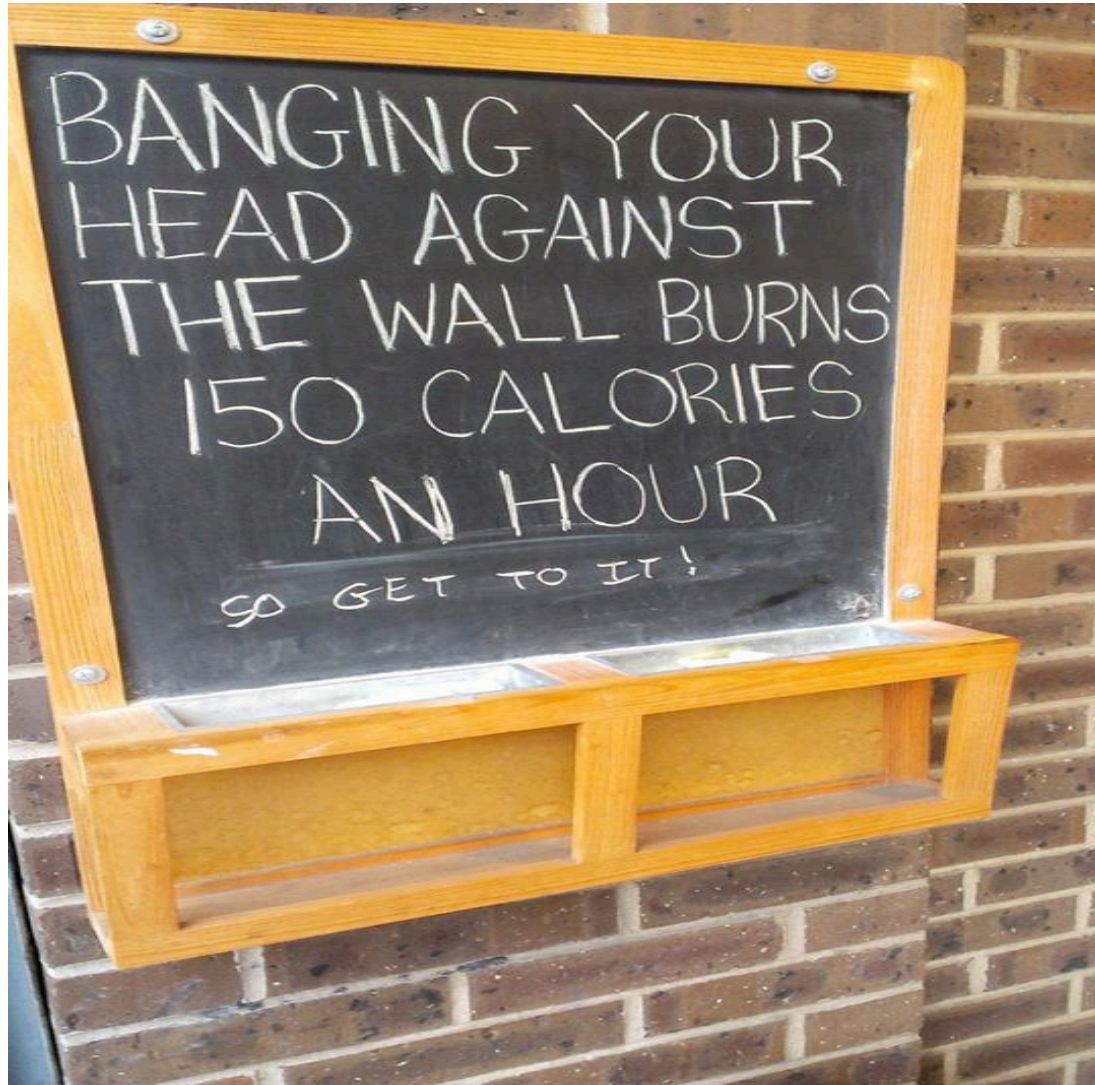 BANGING YOUR
HEAD AGAINST
THE WALL BURNS
150 CALORIES
AN HOUR
SO GET TO IT!